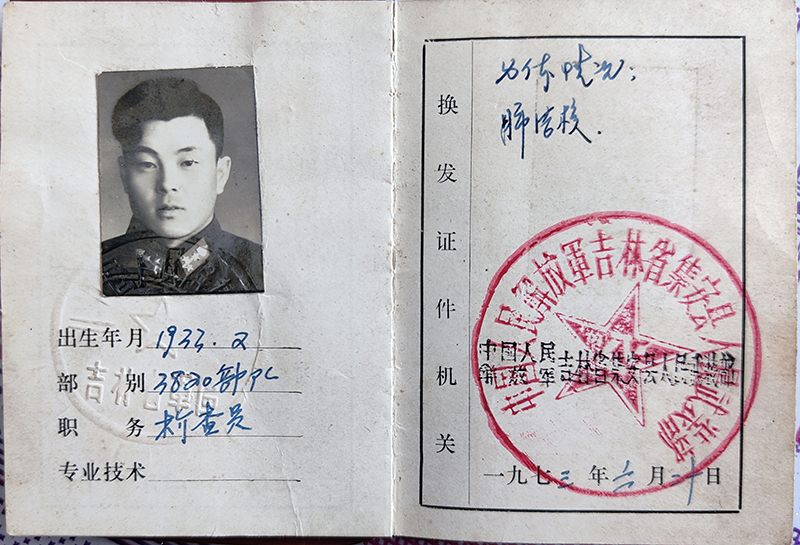 出生年月 1933.2
部别 3820部队
职务 检查员
专业技术
吉林省
换发证件机关
情况:
肺结核.
中国人民解放軍吉林省集安县人民武装部
中国人民
解放军 吉林省集安县人民武装部
一九七三年六月十日